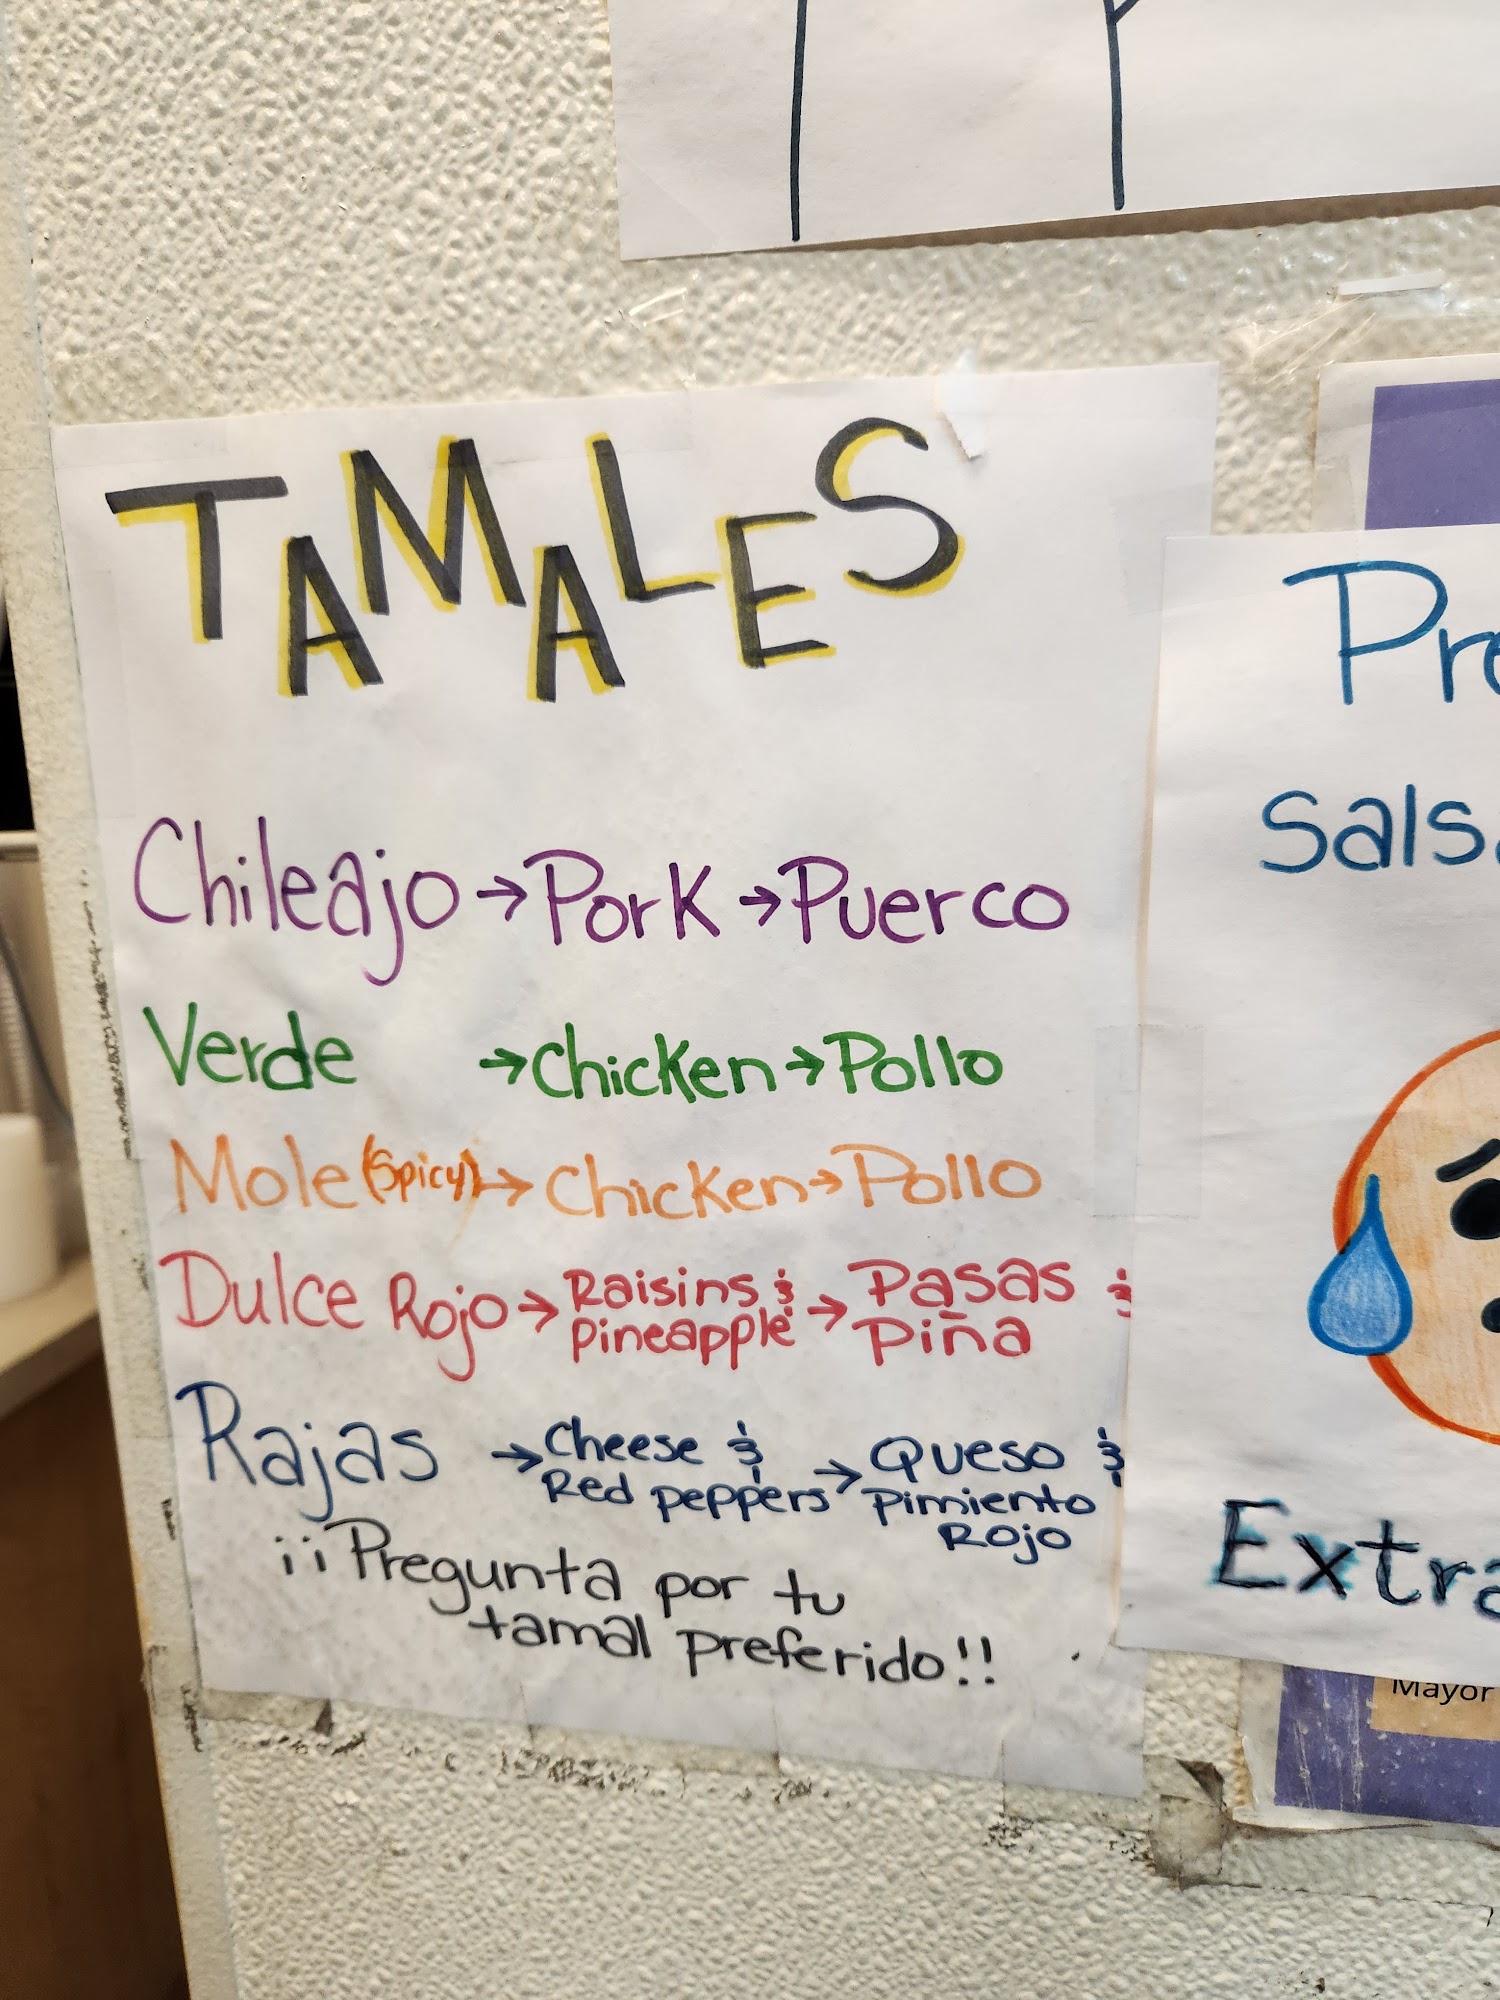 TAMALES
Chileajo → Pork → Puerco
Verde → Chicken → Pollo
Mole (Spicy) → Chicken → Pollo
Dulce Rojo → Raisins & Pineapple → Pasas & Piña
Rajas → Cheese & Red peppers → Queso & Pimiento Rojo
¡¡Pregunta por tu
tamal preferido!!
Extra
Mayor